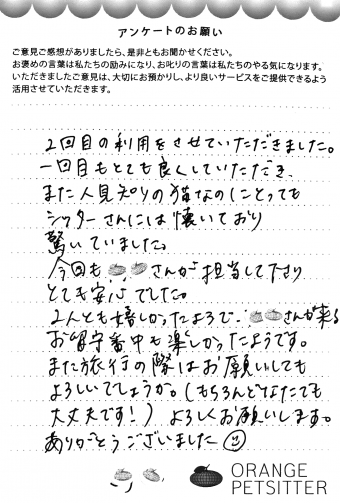 アンケートのお願い
ご意見ご感想がありましたら、是非ともお聞かせください。
お褒めの言葉は私たちの励みになり、お叱りの言葉は私たちのやる気になります。
いただきましたご意見は、大切にお預かりし、より良いサービスをご提供できるよう
活用させていただきます。
2回目の利用をさせていただきました。
一回目もとても良くしていただき、
また人見知りの猫なのにとっても
シッターさんには懐いており
驚いていました。
今回も さんが担当して下さり
とても安心でした。
2人とも嬉しかったようで、 さんが来る
お留守番中も楽しかったようです。
また旅行の際はお願いしても
よろしいでしょうか。(もちろんどなたでも
大丈夫です!) よろしくお願いします。
ありがとうございました
ORANGE
PETSITTER